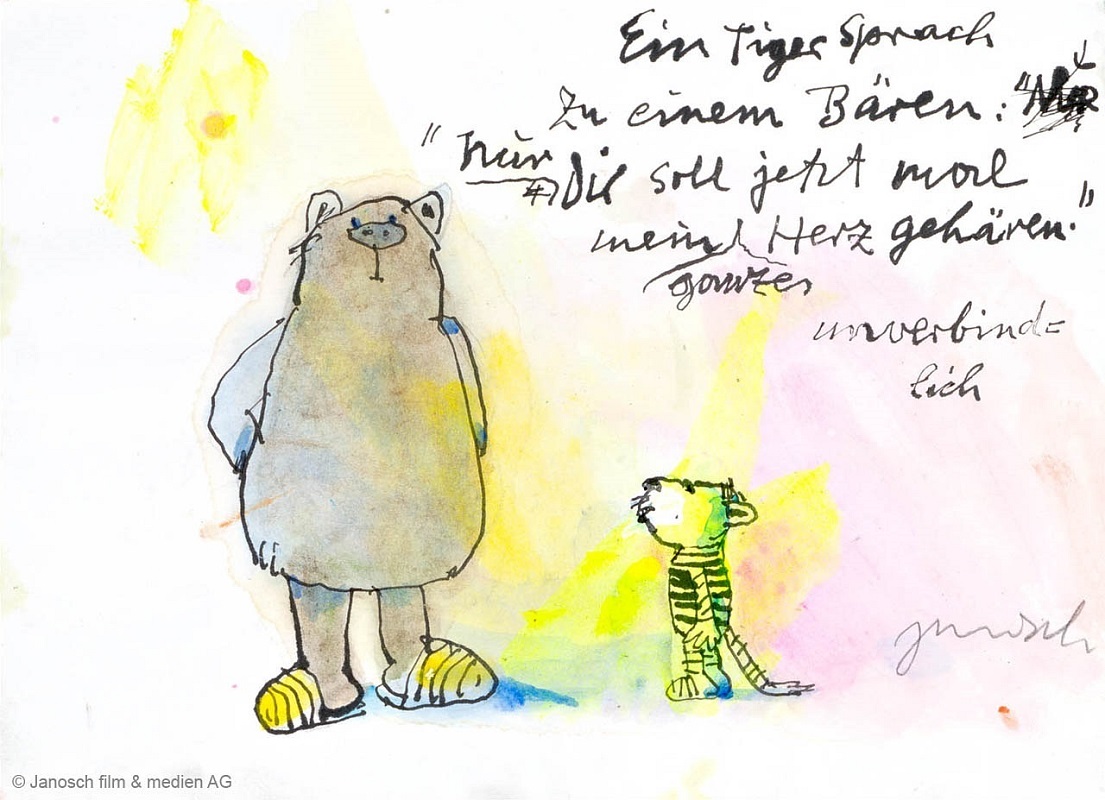 Ein Tiger sprach
zu einem Bären: "
"nur Dir soll jetzt mal
mein Herz gehären."
ganzes
unverbind=
lich
janosch
© Janosch film & medien AG